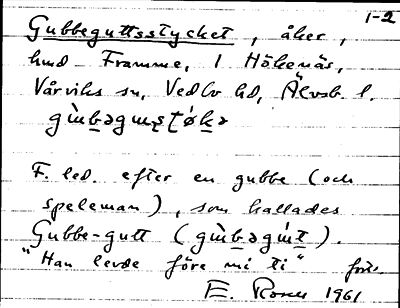 1-2
Gubbeguttsstycket, åker,
hmd Framme, 1 Hökenäs,
Vårviks sn, Vedbo hd, Älvsb. l.
F. led. efter en gubbe (och
speleman), som kallades
Gubbe-gutt
"Han levde före mi ti"
E. Rosell 1961